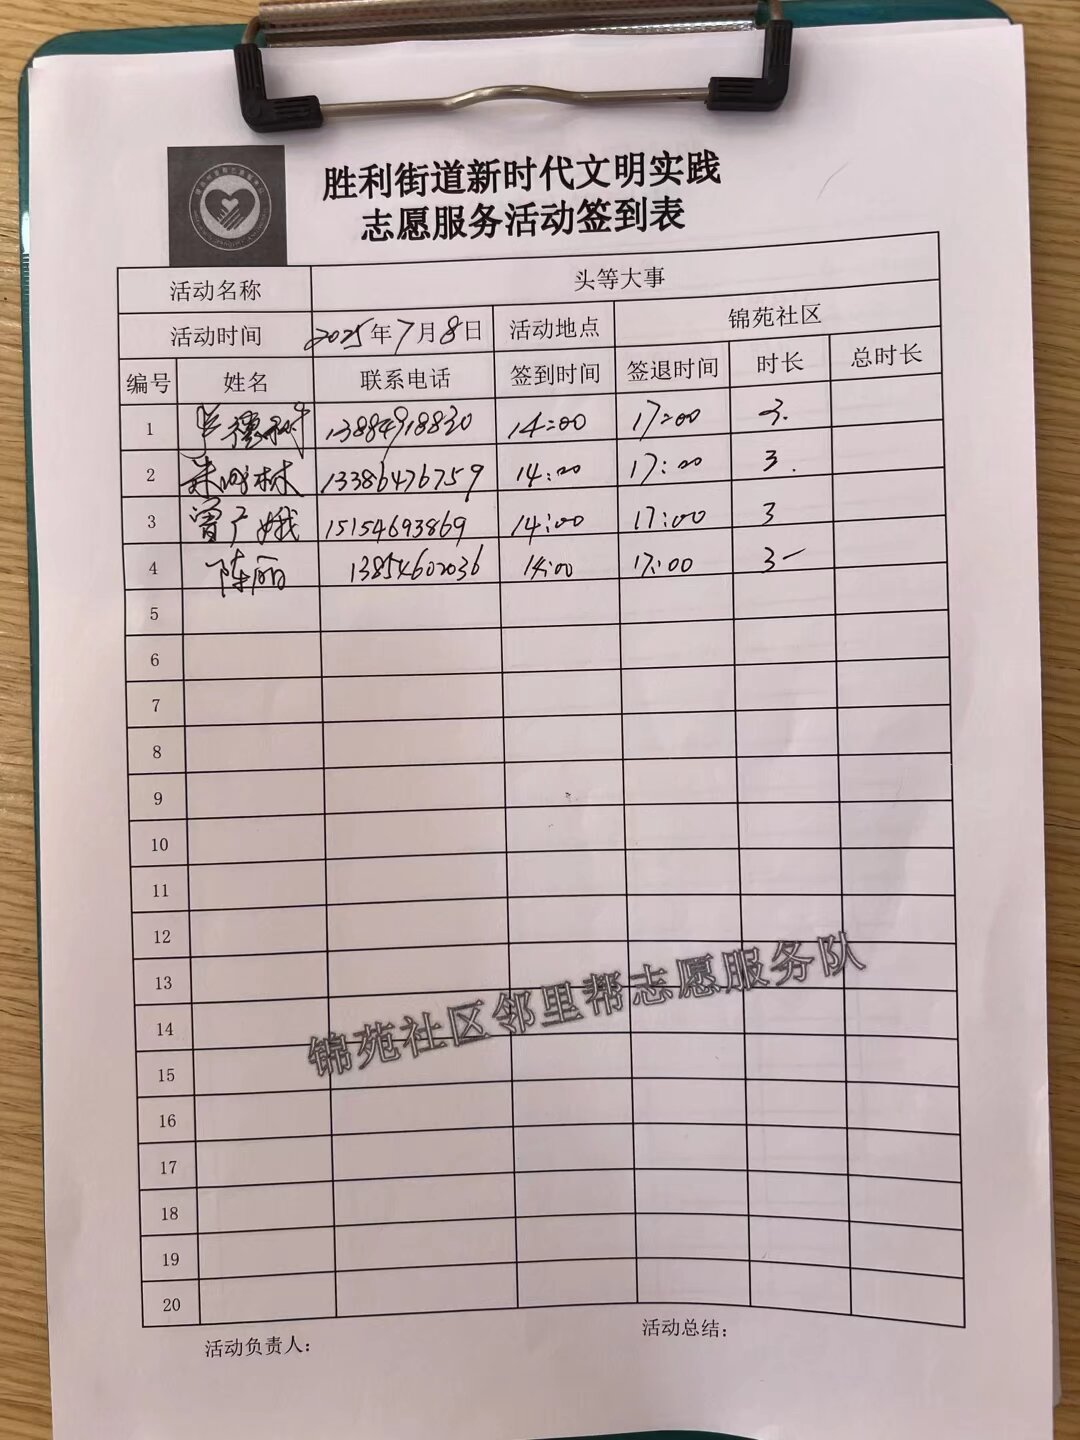 胜利街道新时代文明实践
志愿服务活动签到表
活动名称 头等大事
活动时间 2025年7月8日 活动地点 锦苑社区
编号 姓名 联系电话 签到时间 签退时间 时长 总时长
1 13884918830 14:00 17:00 3.
2 林 13386476759 14:00 17:00 3.
3 曾广娥 15154693869 14:00 17:00 3
4 陈丽 13854602036 14:00 17:00 3
5
6
7
8
9
10
11
12
13
锦苑社区邻里帮志愿服务队
14
15
16
17
18
19
20
活动负责人: 活动总结: